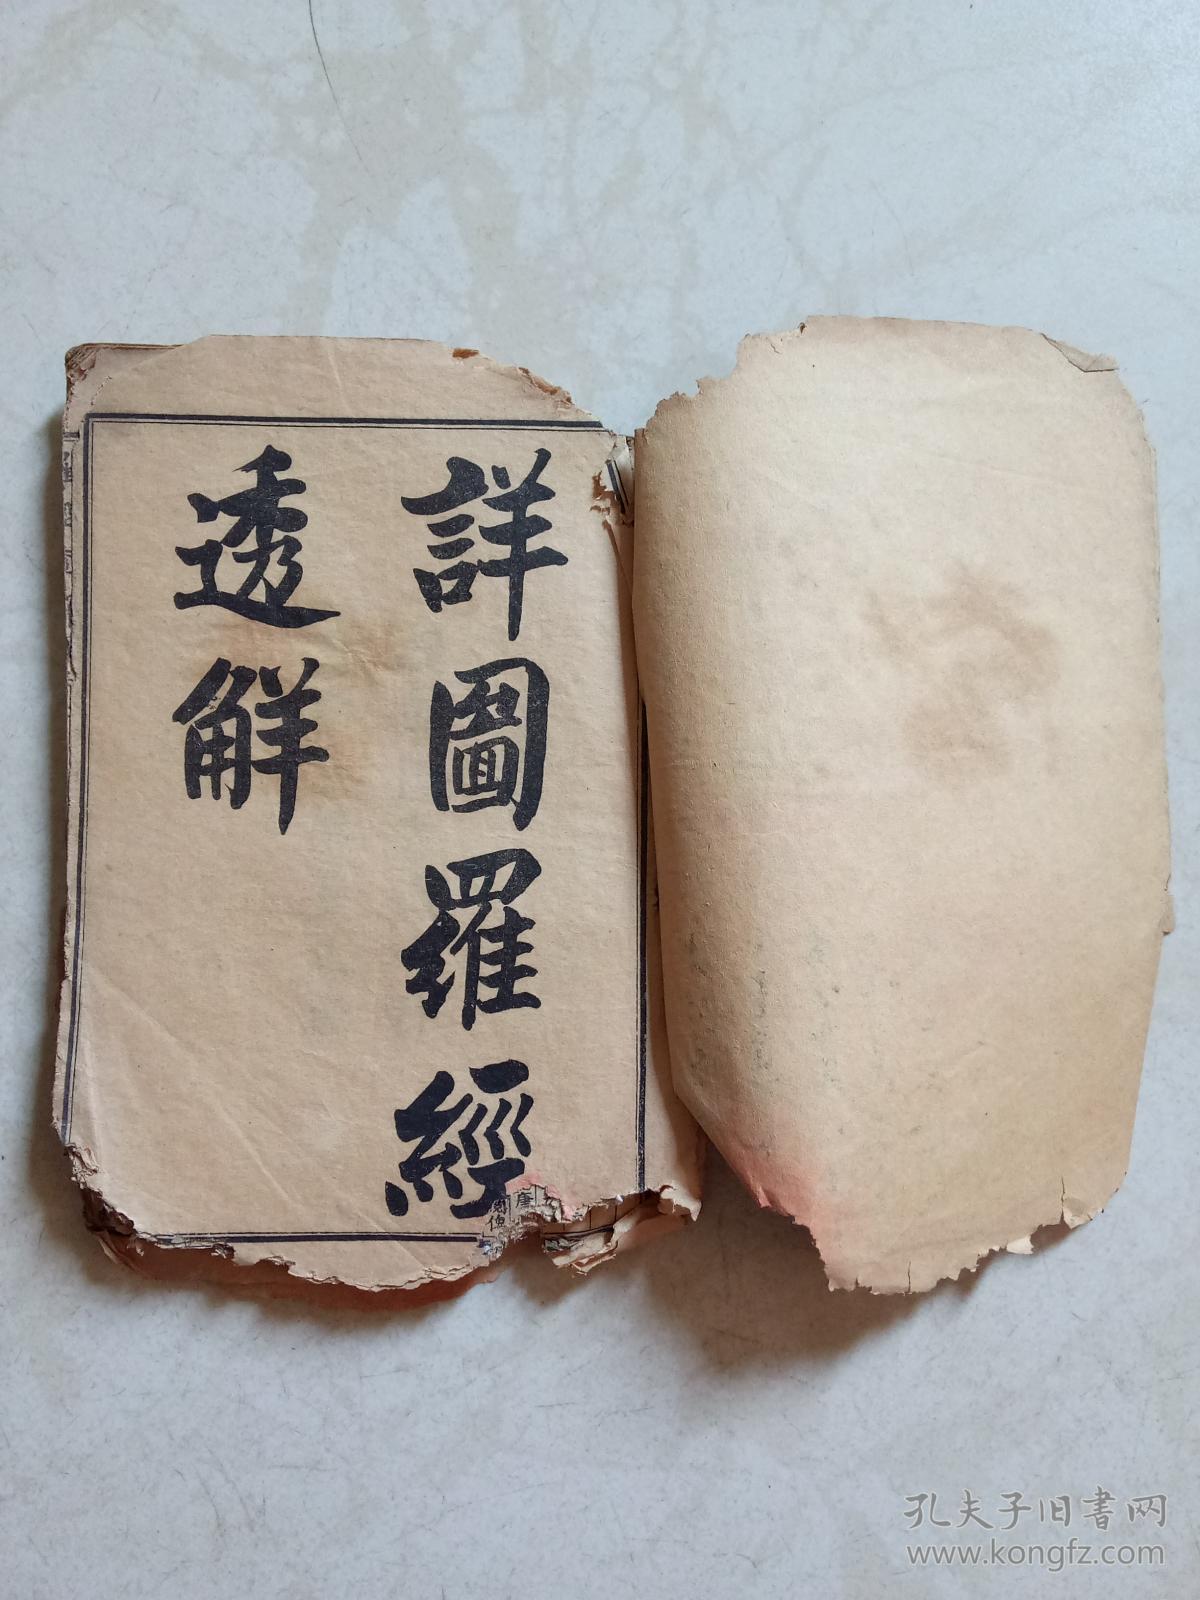 詳圖羅經
透解
孔夫子旧书网
www.kongfz.com